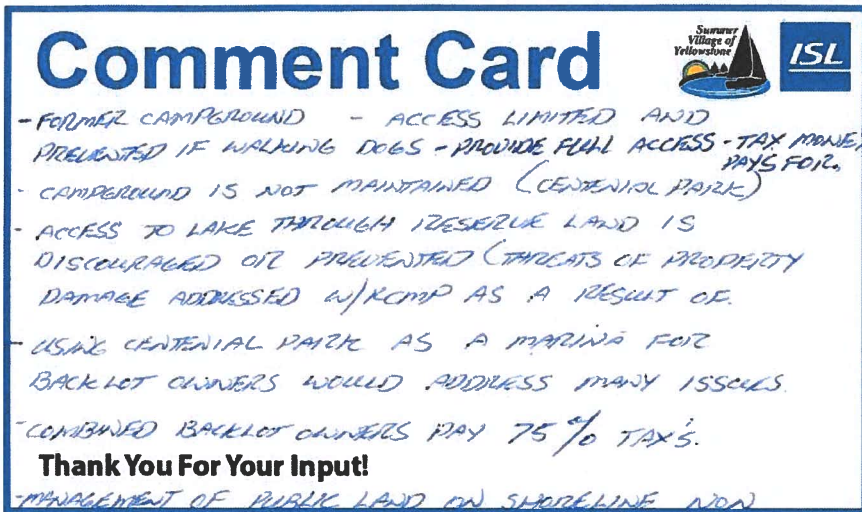 Comment Card
Summer
Village of
Yellowstone
ISL
- FORMER CAMPGROUND - ACCESS LIMITED AND
PREVENTED IF WALKING DOGS - PROVIDE FULL ACCESS - TAX MONEY
PAYS FOR.
- CAMPGROUND IS NOT MAINTAINED (CENTENIAL PARK)
- ACCESS TO LAKE THROUGH RESERVE LAND IS
DISCOURAGED OR PREVENTED (THREATS OF PROPERTY
DAMAGE ADDRESSED W/RCMP AS A RESULT OF.
- USING CENTENIAL PARK AS A MARINA FOR
BACKLOT OWNERS WOULD ADDRESS MANY ISSUES.
- COMBINED BACKLOT OWNERS PAY 75% TAX'S.
Thank You For Your Input!
- MANAGEMENT OF PUBLIC LAND ON SHORELINE NON